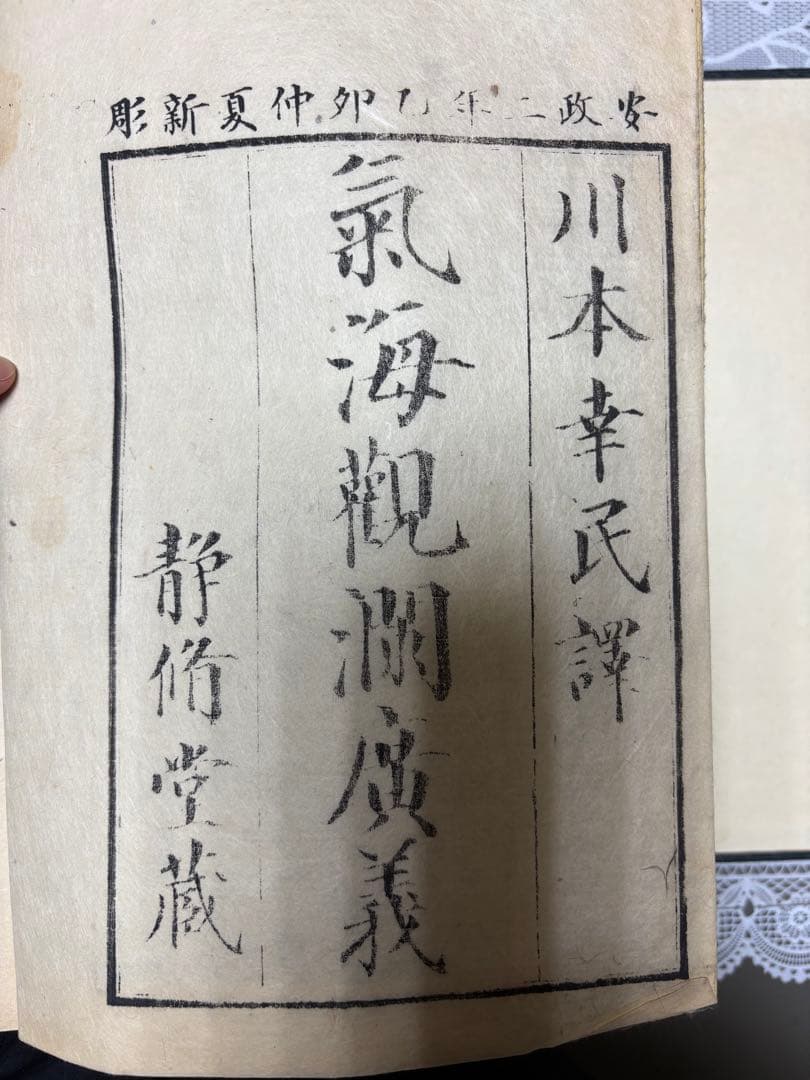 安政二年乙卯仲夏新彫
川本幸民譯
氣海觀瀾廣義
静脩堂藏